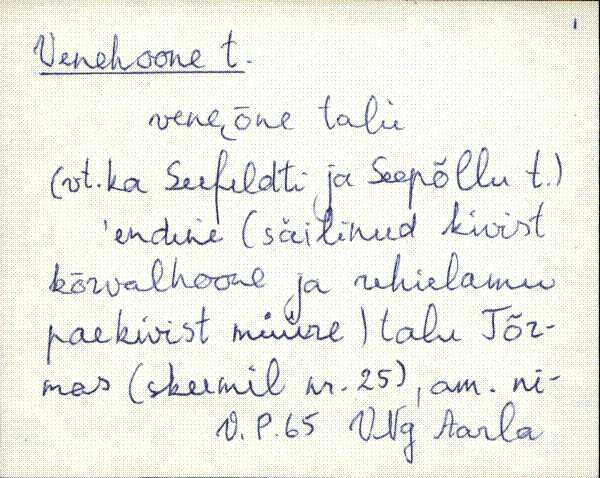 Venehoone t.
venę̄ōne talu
(vt. ka Seefeldti ja Seepõllu t.)
'endine (säilinud kivist
kõrvalhoone ja rehielamu
paekivist müüre) talu Tõr-
mas (skeemil nr. 25), am. ni-
V.P.65 VNg Aarla